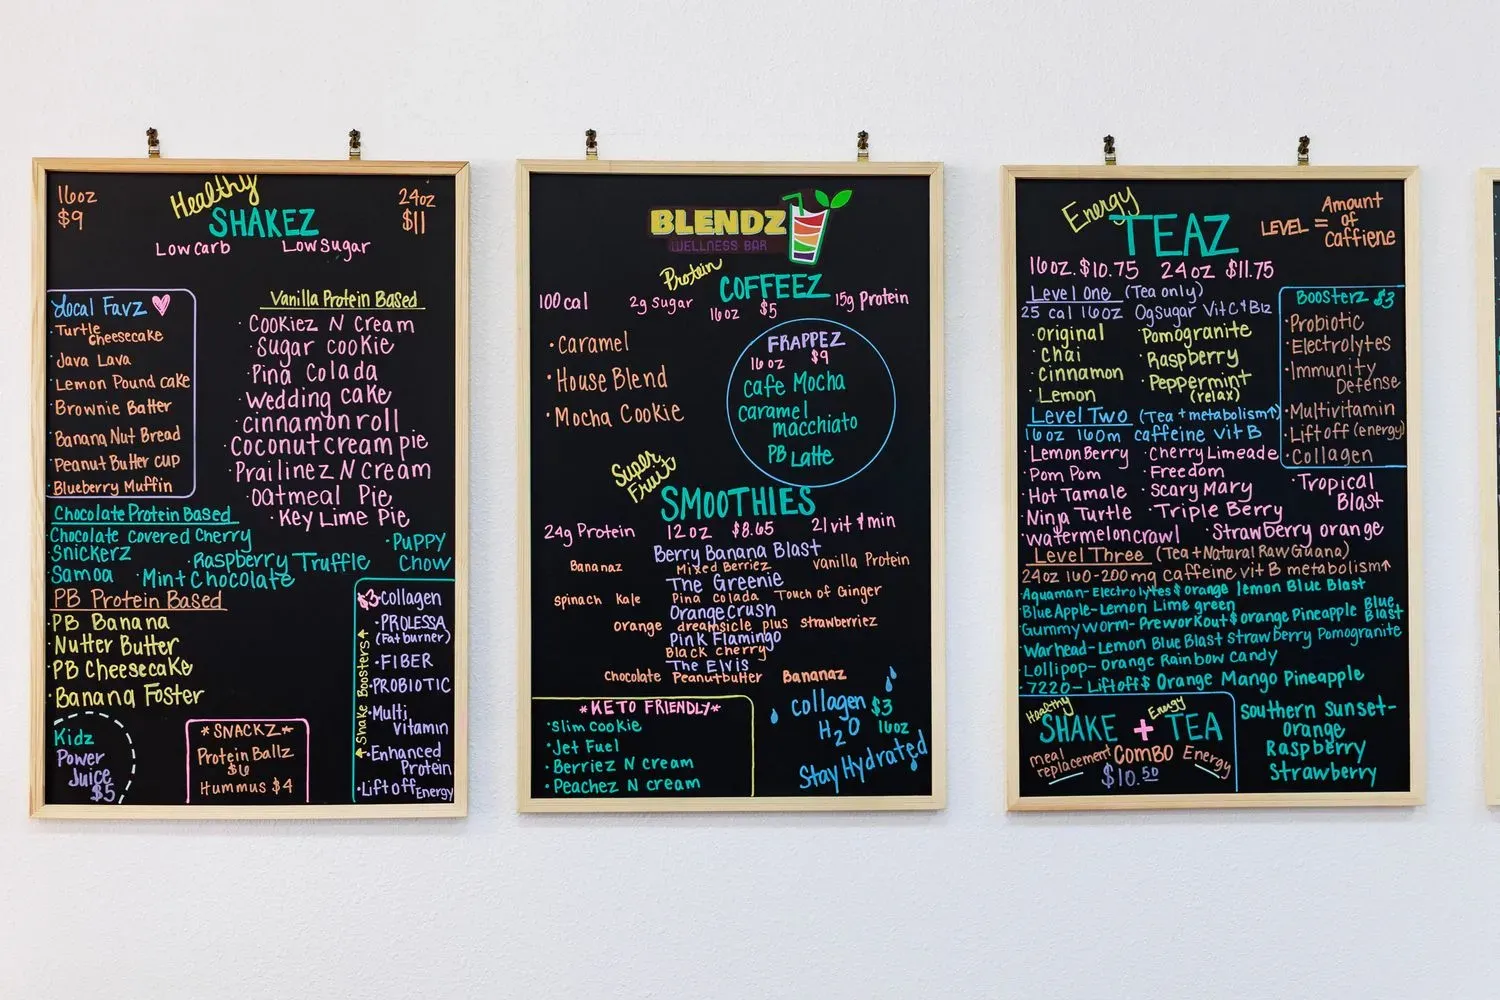 16oz
$9
Healthy
SHAKEZ
24oz
$11
Low carb Low sugar
Local Favz
·Turtle cheesecake
·Java Lava
·Lemon Pound cake
·Brownie Batter
·Banana Nut Bread
·Peanut Butter cup
·Blueberry Muffin
Vanilla Protein Based
·Cookiez N Cream
·Sugar cookie
·Pina Colada
·Wedding cake
·cinnamon roll
·Coconut cream pie
·Prailinez N Cream
·Oatmeal Pie
·Key Lime Pie
Chocolate Protein Based
Chocolate covered Cherry
Snickerz ·Raspberry Truffle
Samoa ·Mint Chocolate
·Puppy
Chow
PB Protein Based
·PB Banana
·Nutter Butter
·PB Cheesecake
·Banana Foster
Kidz
Power
Juice
$5
*SNACKZ*
Protein Ballz
$6
Hummus $4
Shake Boosters
$3
·Collagen
·PROLESSA
(Fat burner)
·FIBER
·PROBIOTIC
·Multi
Vitamin
·Enhanced
Protein
·Liftoff Energy
BLENDZ
WELLNESS BAR
Protein
COFFEEZ
100 cal 2g sugar 16oz $5 15g Protein
·Caramel
·House Blend
·Mocha Cookie
FRAPPEZ
16oz $9
Cafe Mocha
caramel
macchiato
PB Latte
Super
Fruit
SMOOTHIES
24g Protein 12oz $8.65 21 vit & min
Berry Banana Blast
Bananaz Mixed Berriez vanilla Protein
The Greenie
spinach Kale Pina colada Touch of Ginger
Orange Crush
orange dreamsicle plus strawberriez
Pink Flamingo
Black cherry
The Elvis
Chocolate Peanutbutter Bananaz
*KETO FRIENDLY*
·Slim cookie
·Jet Fuel
·Berriez N cream
·Peachez N cream
collagen $3
H2O 16oz
Stay Hydrated
Energy
TEAZ
LEVEL = Amount
of
caffiene
16oz. $10.75 24oz $11.75
Level One (Tea only)
25 cal 16oz 0g sugar Vit C & B12
·Original
·chai
·cinnamon
·Lemon
·Pomogranite
·Raspberry
·Peppermint
(relax)
Boosterz $3
·Probiotic
·Electrolytes
·Immunity
Defense
·Multivitamin
·Liftoff (energy)
·Collagen
Level Two (Tea + metabolism↑)
16oz 160m caffeine vit B
·Lemon Berry
·Pom Pom
·Hot Tamale
·Ninja Turtle
·watermeloncrawl
·Cherry Limeade
·Freedom
·Scary Mary
·Triple Berry
·Strawberry orange
·Tropical
Blast
Level Three (Tea + Natural Raw Guuana)
24oz 160-200mg caffeine vit B metabolism↑
·Aquaman-Electrolytes & orange lemon Blue Blast
·Blue Apple-Lemon Lime green
·Gummy Worm-Preworkout & orange Pineapple Blue Blast
·Warhead-Lemon Blue Blast strawberry Pomogranite
·Lollipop-Orange Rainbow Candy
·7220-Liftoff & Orange Mango Pineapple
Healthy Energy
SHAKE + TEA
meal
replacement COMBO Energy
$10.50
Southern Sunset-
Orange
Raspberry
Strawberry